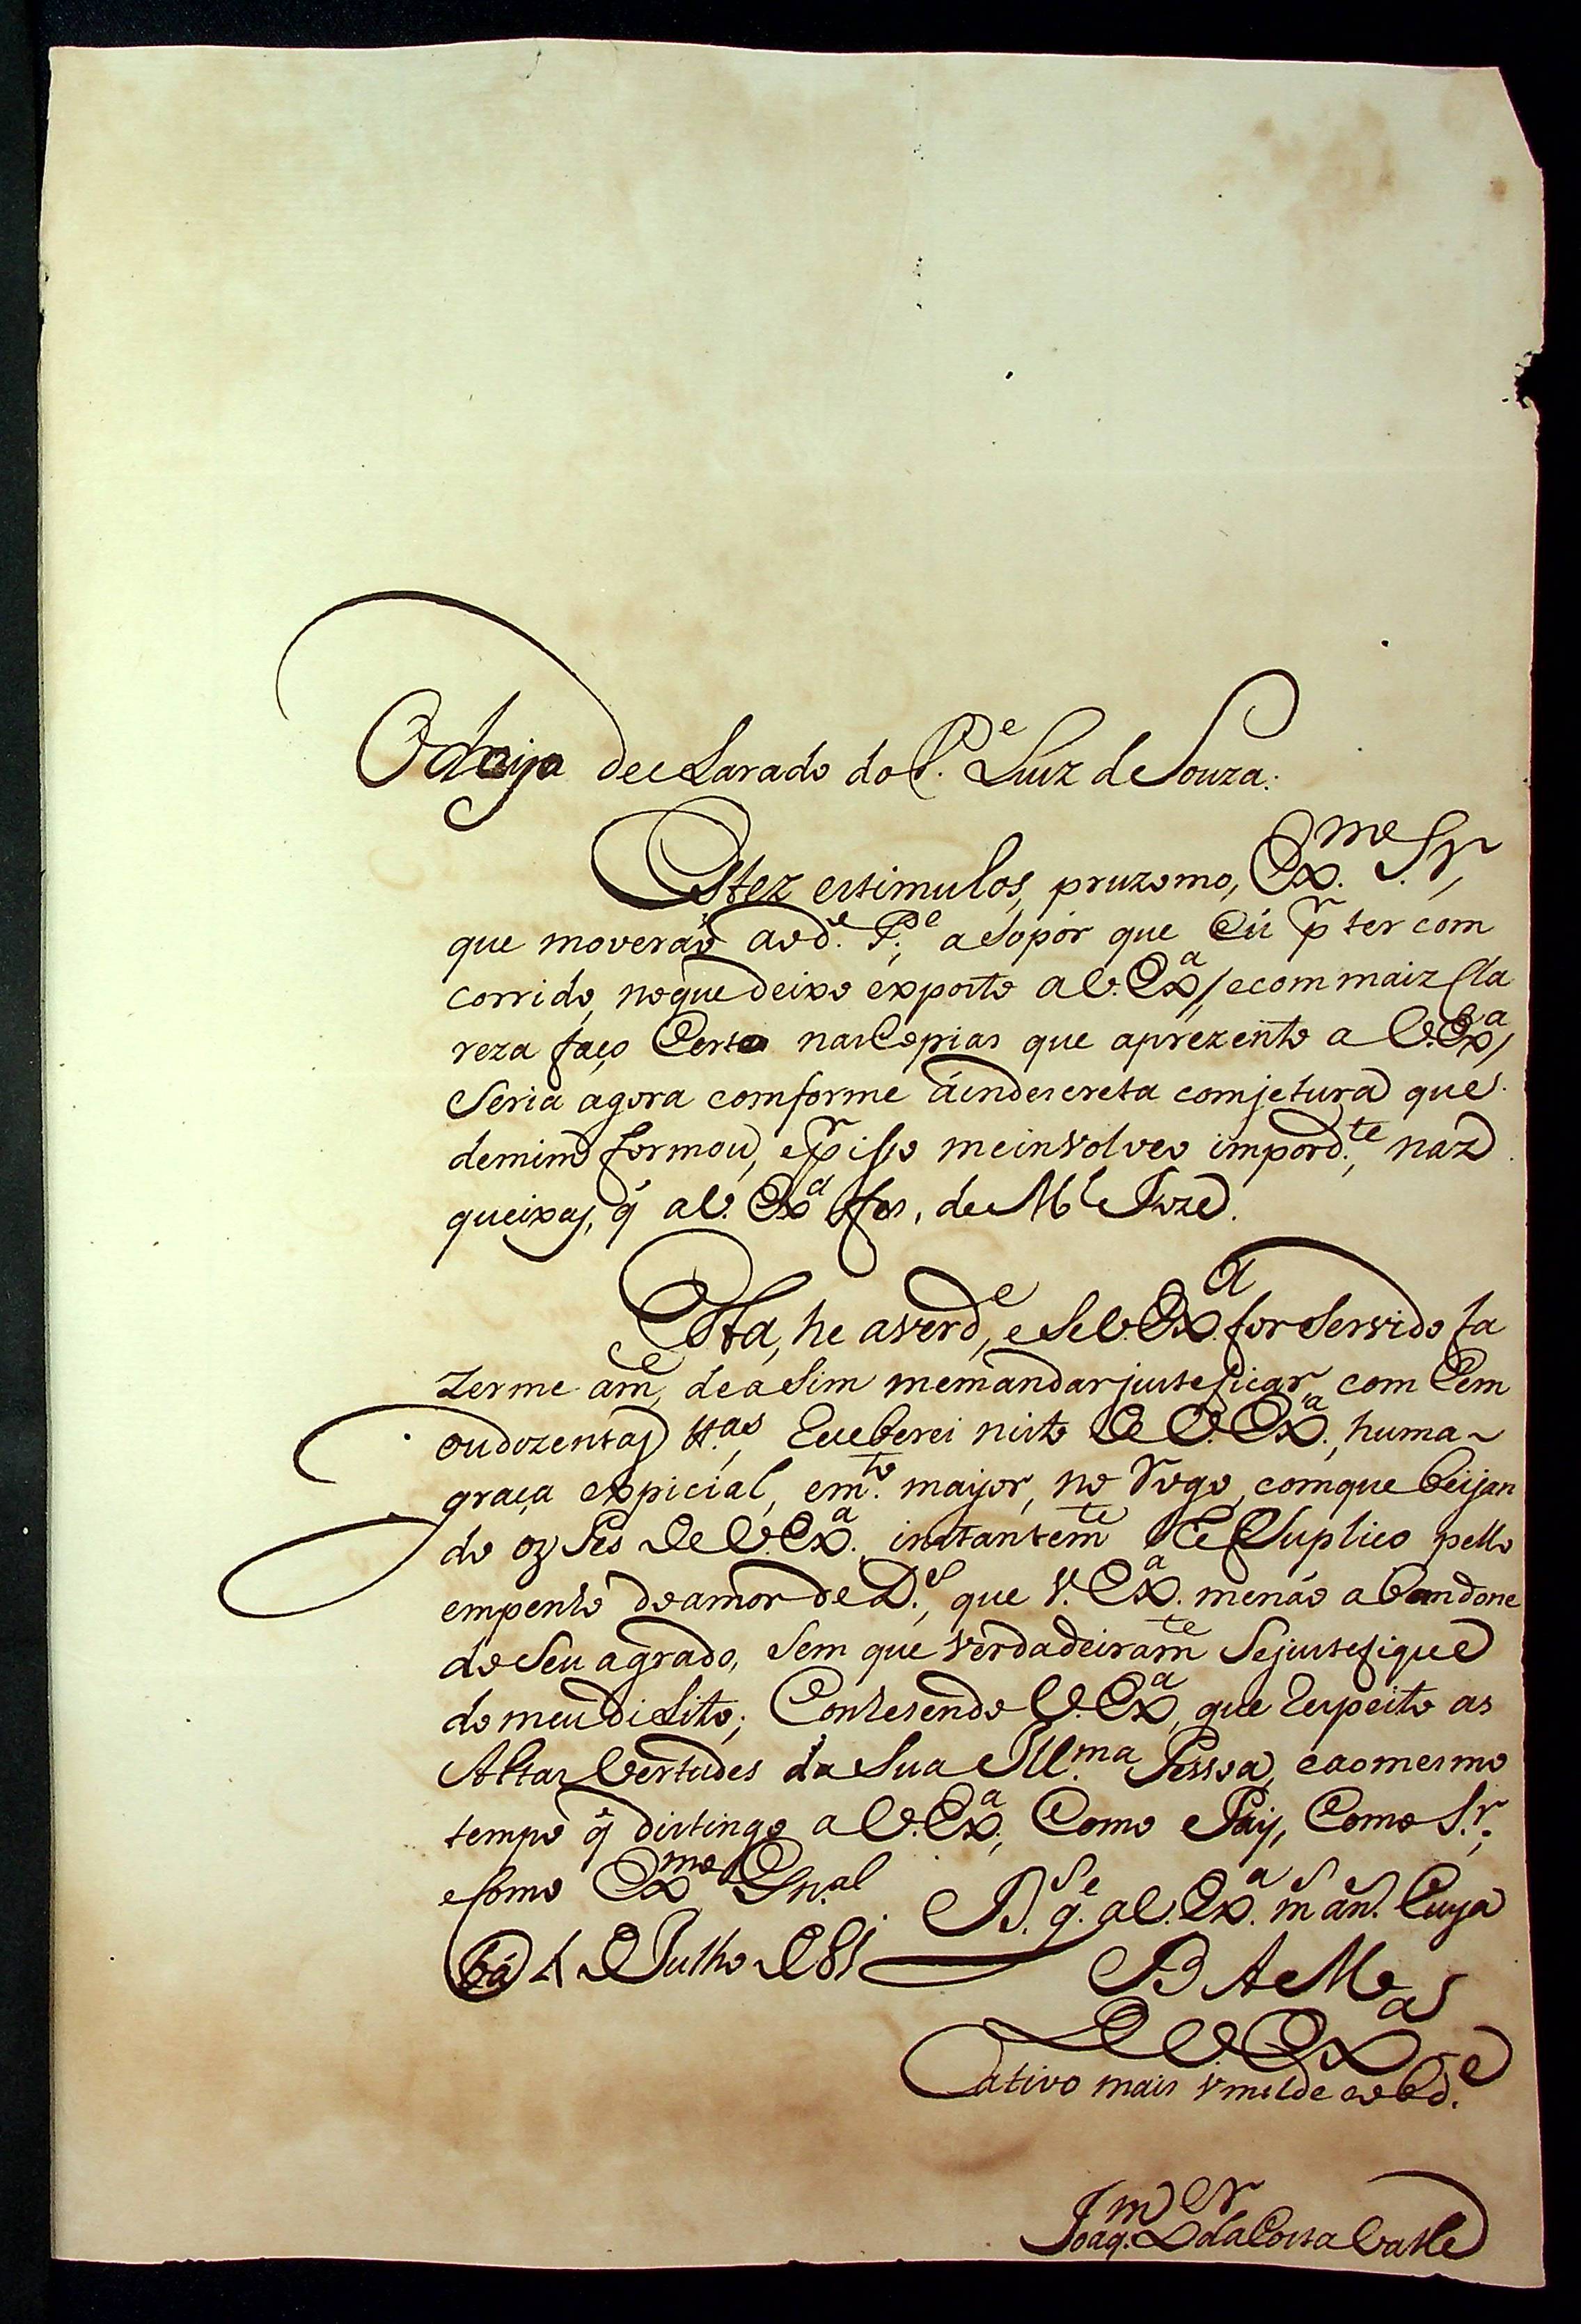 Odeija declarado do P.e Luiz de Souza.
Estez estimulos, pruzomo, Ex.mo S.r,
que moveraõ aod.e P.e, a Sopór que Eú p.r ter com
corrido, noque deixo exposto a V. Ex.a / ecom mais Cla
reza faço Certo nas Copias que aprezento a V. Ex.a /
Seria agora comforme áindescreta comjetura que
demim formou, ep.r isso meinvolveo impord.te, naz
queixas, q̃ a V. Ex.a fes, de M.el Joze.
Esta, he averd.e, eSe V. Ex.a for Servido fa
zerme am.e, de a Sim memandar justeficar com Cem
oudozentas tt.as, Receberei nisto de V. Ex.a, huma
graça expicial, em.to maijor, no Rogo, comque beijan
do oz Pes de V. Ex.a, instantem.te lhe Suplico pello
empenho do amor de D.s, que V. Ex.a menáo abandone
do Seu agrado, Sem que verdadeiram.te Sejustefique
do meu dilito; Conhesendo V. Ex.a, que Respeito as
Altas Vertudes da Sua Ill.ma Pessoa, eaomesmo
tempo q̃ distingo a V. Ex.a, Como Paij, Como S.r,
eComo Ex.mo Gn.al
D.s g.e a V. Ex.a m.s an.s Cuya
bá 4 de Julho de 81
B A M
De V. Ex.a
Cativo mais vmilde eobd.e
Joaq.m L.er da Costa Valle